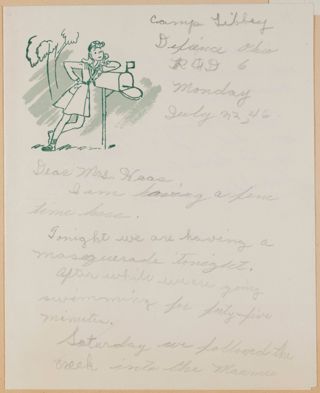 Camp Libbey
Defiance Ohio
RFD 6
Monday
July 22, 46
Dear Mrs. Haas
I am having a fine
time here.
Tonight we are having a
masquerade tonight.
After while we are going
swimming for forty-five
minutes.
Saturday we followed the
creek into the Maumee